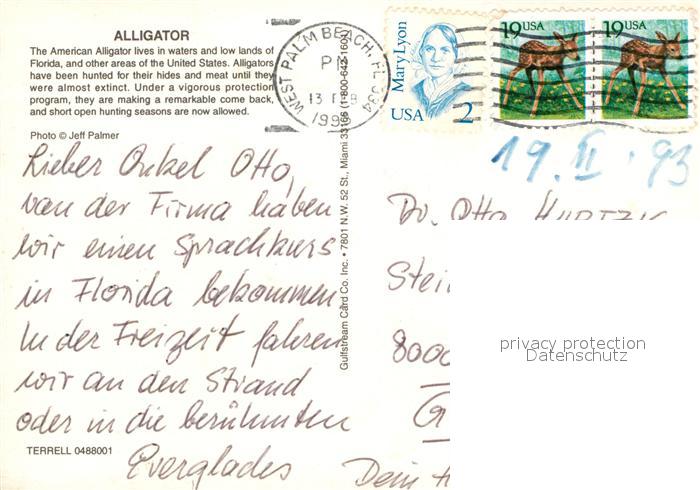 ALLIGATOR
The American Alligator lives in waters and low lands of
Florida, and other areas of the United States. Alligators
have been hunted for their hides and meat until they
were almost extinct. Under a vigorous protection
program, they are making a remarkable come back,
and short open hunting seasons are now allowed.
Photo © Jeff Palmer
Lieber Onkel Otto,
van der Firma haben
wir einen Sprachkurs
in Florida bekommen
In der Freizeit fahren
wir an den Strand
oder in die berühmten
Everglades
TERRELL 0488001
Gulfstream Card Co. Inc. • 7801 N.W. 52 St., Miami 33166 (1-800-642-1607)
WEST PALM BEACH, FL 334
PM
13 FEB
1993
Mary Lyon
USA 2
19 USA
19 USA
19. II. 93
Dr. Otto
8000
Dein
privacy protection
Datenschutz